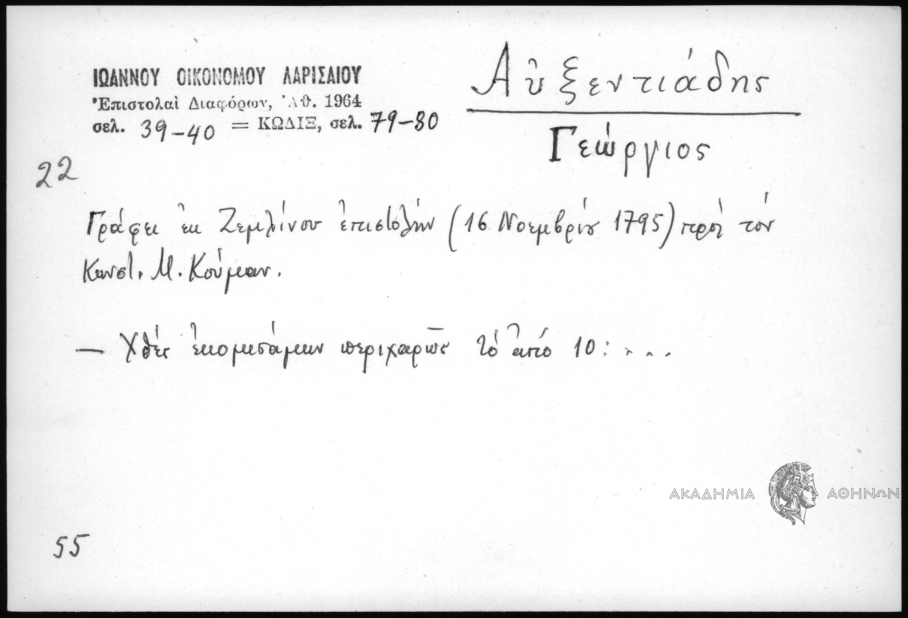 ΙΩΑΝΝΟΥ ΟΙΚΟΝΟΜΟΥ ΛΑΡΙΣΑΙΟΥ
Ἐπιστολαὶ Διαφόρων, Ἀθ. 1964
σελ. 39-40 = ΚΩΔΙΞ, σελ. 79-80
Αὐξεντιάδης
Γεώργιος
22
Γράφει ἐκ Ζεμλίνου ἐπιστολήν (16 Νοεμβρίου 1795) πρὸς τόν
Κωνστ. Μ. Κούμαν.
— Χθές ἐκομισάμην περιχαρῶς τό ἀπό 10: . . . .
ΑΚΑΔΗΜΙΑ ΑΘΗΝΩΝ
55